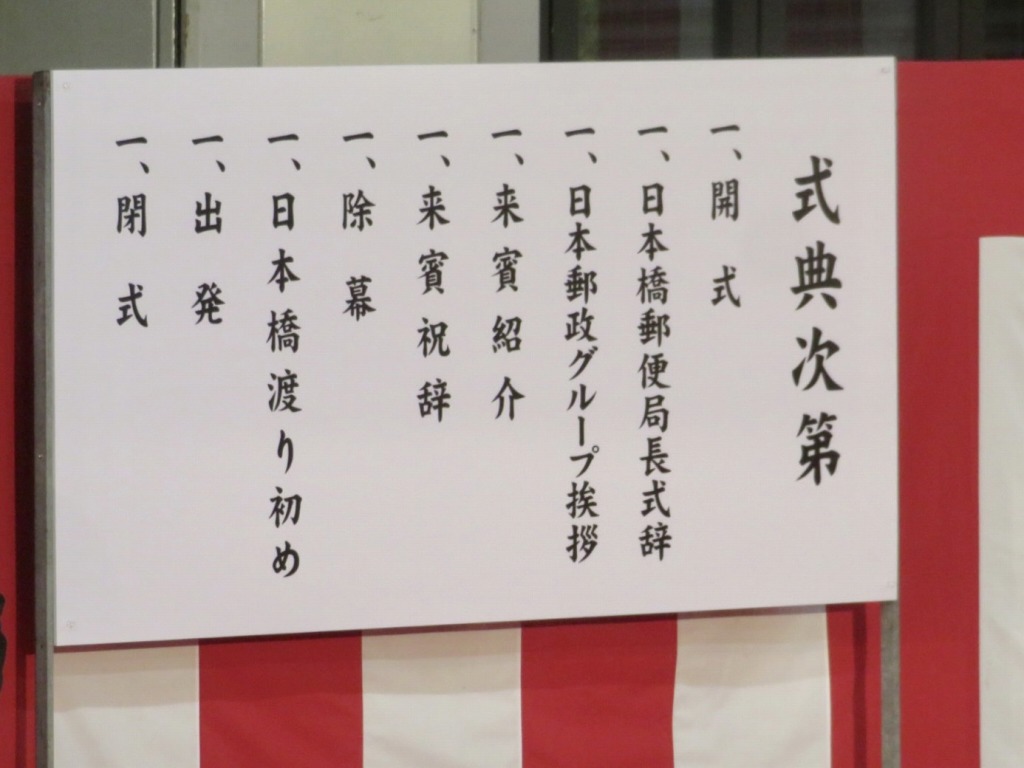 式典次第
一、開式
一、日本橋郵便局長式辞
一、日本郵政グループ挨拶
一、来賓紹介
一、来賓祝辞
一、除幕
一、日本橋渡り初め
一、出発
一、閉式